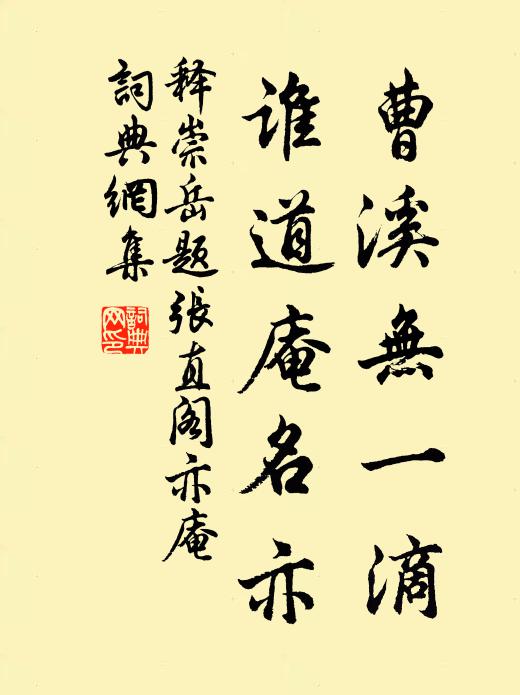 曹溪無一滴
谁道庵名亦
释崇岳题張直阁亦庵
詞典網集
詞典
网印